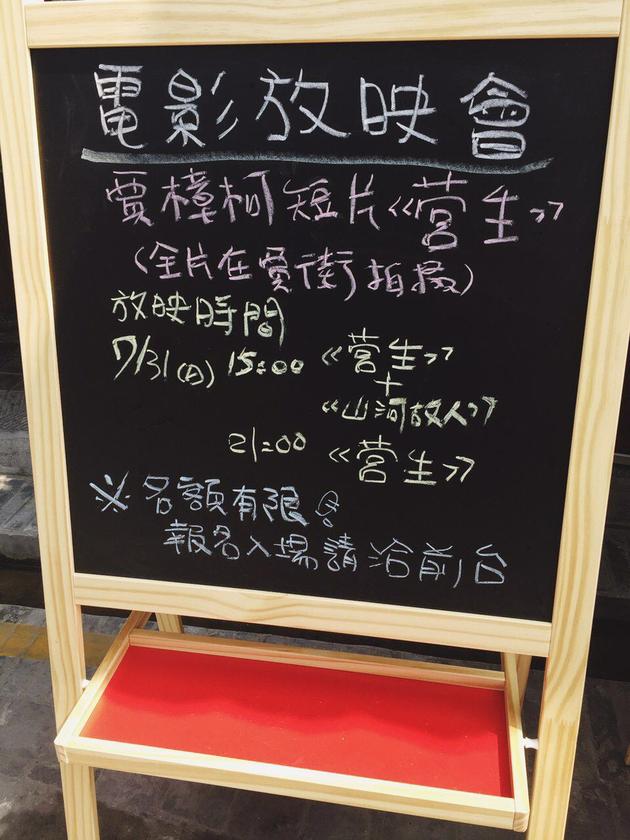 電影放映會
賈樟柯短片《营生》
(全片在賈街拍攝)
放映時間
7/31(日) 15:00 《营生》
+
《山河故人》
21:00 《营生》
※名額有限
報名入場請洽前台